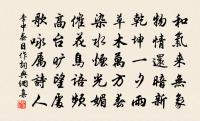 和氣來無象
物情還暗新
乾坤一夕雨
草木萬方春
染水煙光媚
催花鳥語頻
高台曠望處
歌詠屬詩人
李中春日作詞典網集